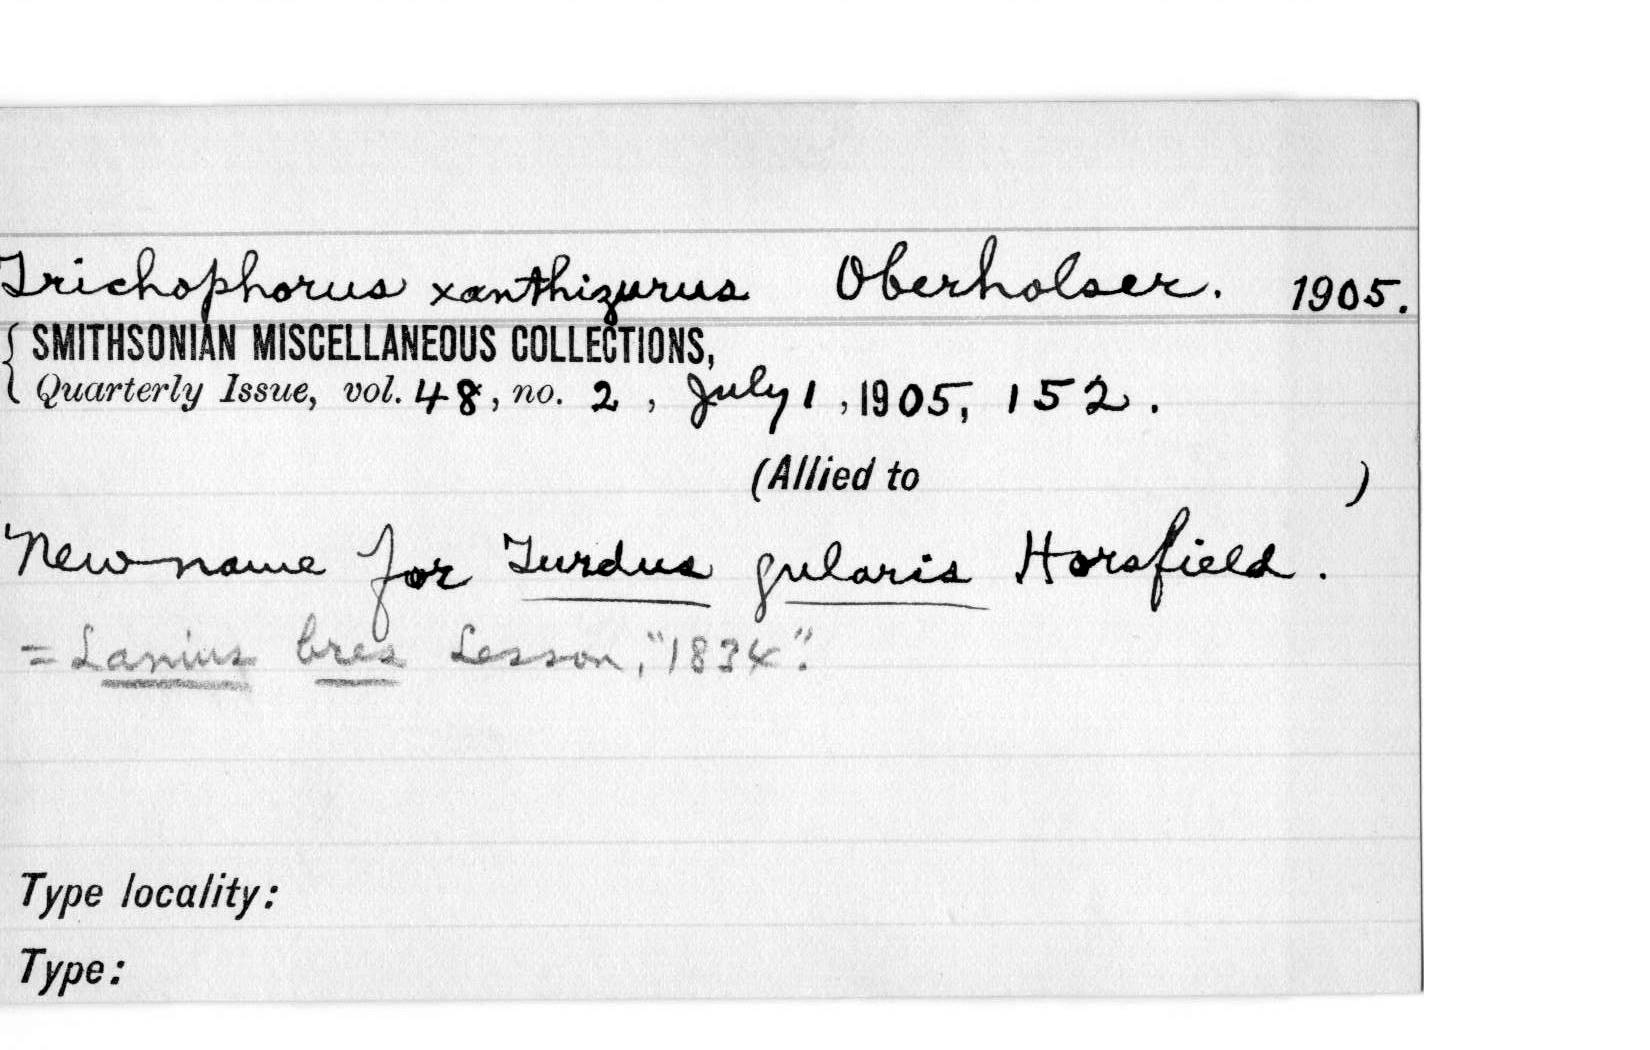 Trichophorus xanthizurus Oberholser. 1905.
{ SMITHSONIAN MISCELLANEOUS COLLECTIONS,
Quarterly Issue, vol. 48, no. 2, July 1, 1905, 152.
(Allied to )
New name for Turdus gularis Horsfield.
= Lanius bres Lesson, "1834".
Type locality:
Type: